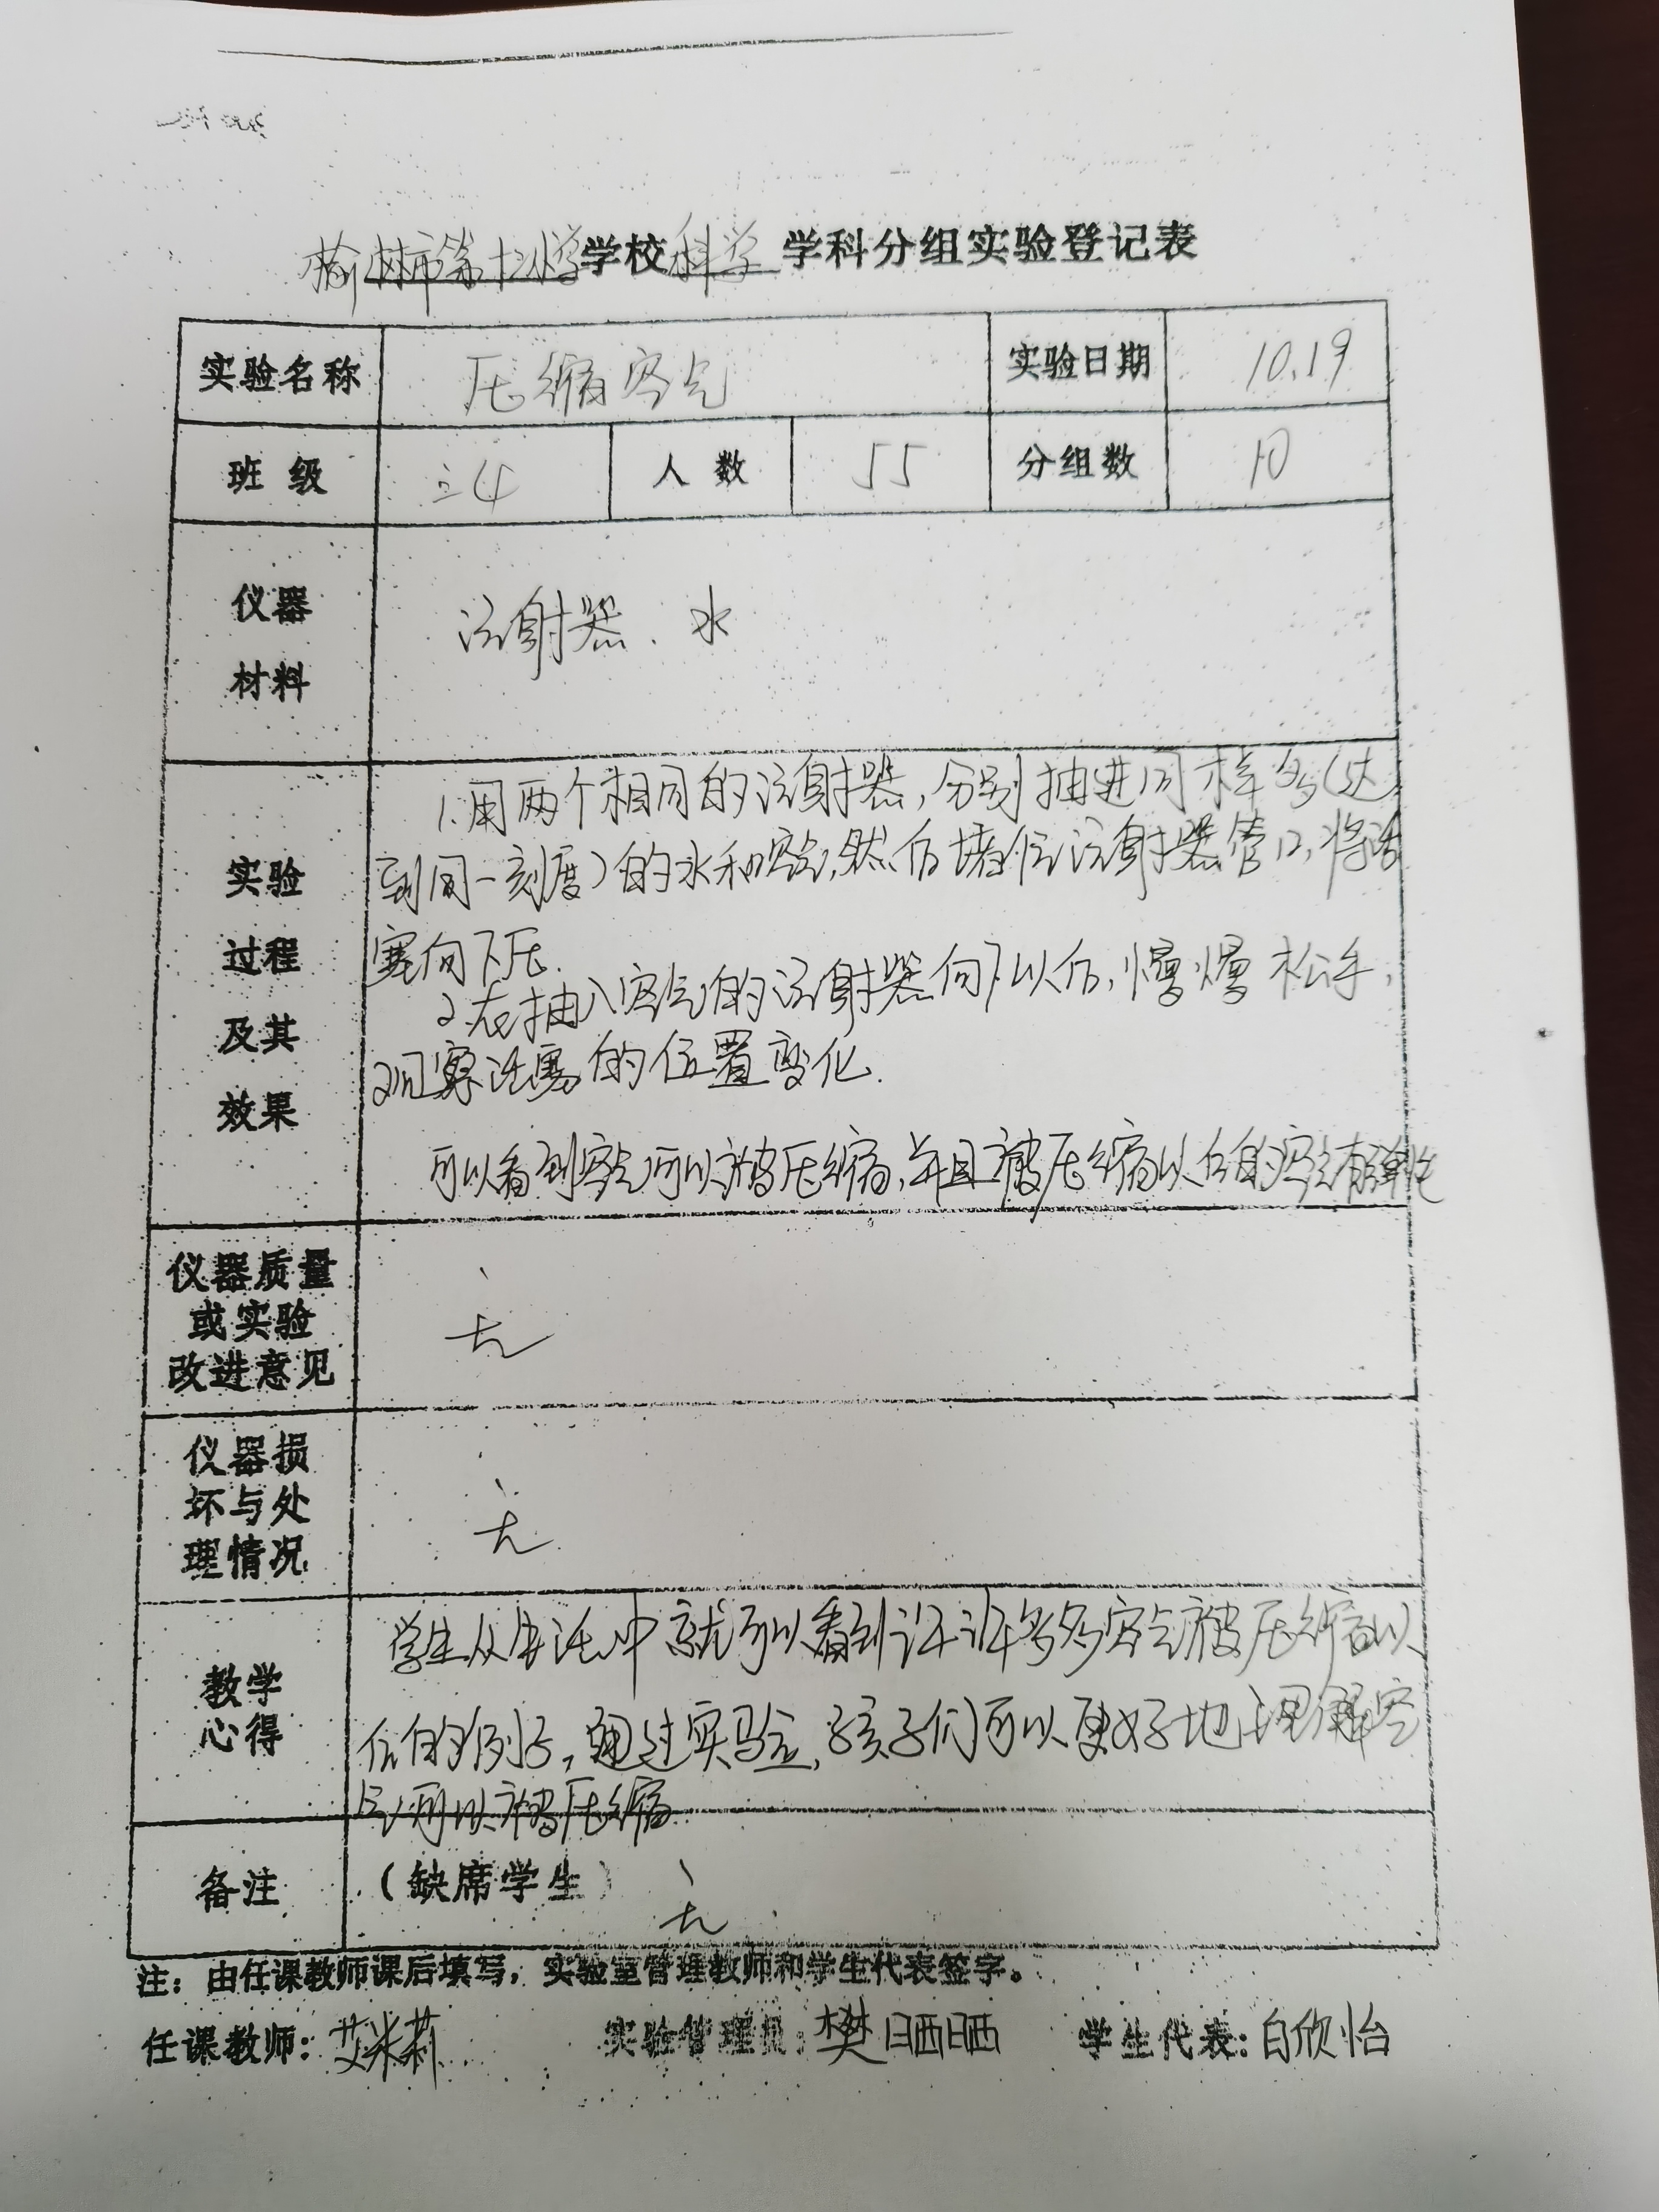 榆林市第十二小学学校科学学科分组实验登记表
实验名称 压缩空气 实验日期 10.19
班 级 三4 人 数 55 分组数 10
仪器
材料
注射器、水
实验
过程
及其
效果
1.用两个相同的注射器,分别抽进同样多(达
到同一刻度)的水和空气,然后堵住注射器管口,将活
塞向下压.
2.在抽入空气的注射器向下以后,慢慢松手,
观察活塞的位置变化.
可以看到空气可以被压缩,并且被压缩以后的空气有弹性
仪器质量
或实验
改进意见
无
仪器损
坏与处
理情况
无
教学
心得
学生从生活中就可以看到许许多多空气被压缩以
后的例子,通过实验,孩子们可以更好地理解空
气可以被压缩
备注 (缺席学生) 无
注:由任课教师课后填写,实验室管理教师和学生代表签字。
任课教师:艾米莉 实验管理员:樊晒晒 学生代表:白欣怡